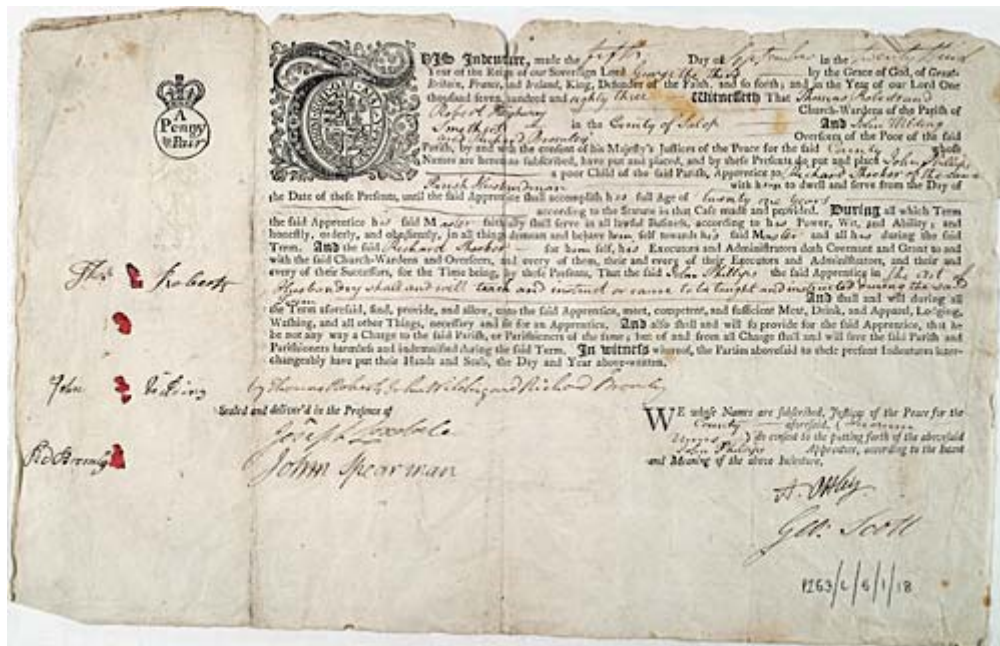 A
Penny
pr Pair
THIS Indenture, made the fifth Day of September in the twenty third
Year of the Reign of our Sovereign Lord George the third by the Grace of God, of Great-
Britain, France, and Ireland, King, Defender of the Faith, and so forth; and in the Year of our Lord One
thousand seven hundred and eighty three Witnesseth That Thomas Roberts and
Robert Highway Church-Wardens of the Parish of
Smethcot in the County of Salop And John Wilding
and Richard Bromley Overseers of the Poor of the said
Parish, by and with the consent of his Majesty's Justices of the Peace for the said County whose
Names are hereunto subscribed, have put and placed, and by these Presents do put and place John Phillips
a poor Child of the said Parish, Apprentice to Richard of the same
Parish Husbandman with him to dwell and serve from the Day of
the Date of these Presents, until the said Apprentice shall accomplish his full Age of twenty one years
according to the Statute in that Case made and provided. During all which Term
the said Apprentice his said Master faithfully shall serve in all lawful Business, according to his Power, Wit, and Ability; and
honestly, orderly, and obediently, in all things demean and behave him self towards his said Master and all his during the said
Term. And the said Richard for him self, his Executors and Administrators doth Covenant and Grant to and
with the said Church-Wardens and Overseers, and every of them, their and every of their Executors and Administrators, and their and
every of their Successors, for the Time being, by these Presents, That the said John Phillips the said Apprentice in the art of
Husbandry shall and will teach and instruct or cause to be taught and instructed during the said
Term And shall and will during all
the Term aforesaid, find, provide, and allow, unto the said Apprentice, meet, competent, and sufficient Meat, Drink, and Apparel, Lodging,
Washing, and all other Things, necessary and fit for an Apprentice. And also shall and will so provide for the said Apprentice, that he
be not any way a Charge to the said Parish, or Parishioners of the same; but of and from all Charge shall and will save the said Parish and
Parishioners harmless and indemnified during the said Term. In witness whereof, the Parties abovesaid to these present Indentures inter-
changeably have put their Hands and Seals, the Day and Year above-written.
Thos Roberts
John Wilding
Rd Bromley
by Thomas Roberts John Wilding and Richard Bromley
Sealed and deliver'd in the Presence of
Joseph
John Spearman
WE whose Names are subscribed, Justices of the Peace for the
County aforesaid,
do consent to the putting forth of the abovesaid
John Phillips Apprentice, according to the Intent
and Meaning of the above Indenture.
Geo: Scott
P263/L/6/1/18